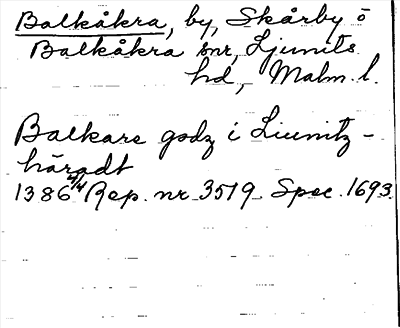 Balkåkra, by, Skårby ö
Balkåkra snr, Ljunits
hd, Malm. l.
Balkare godz i Liunitz-
häradt
1386 4/4 Rep. nr 3519 Spec. 1693.